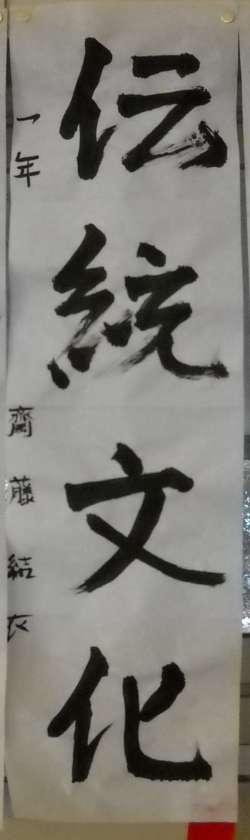 伝統文化
一年 齋藤結衣